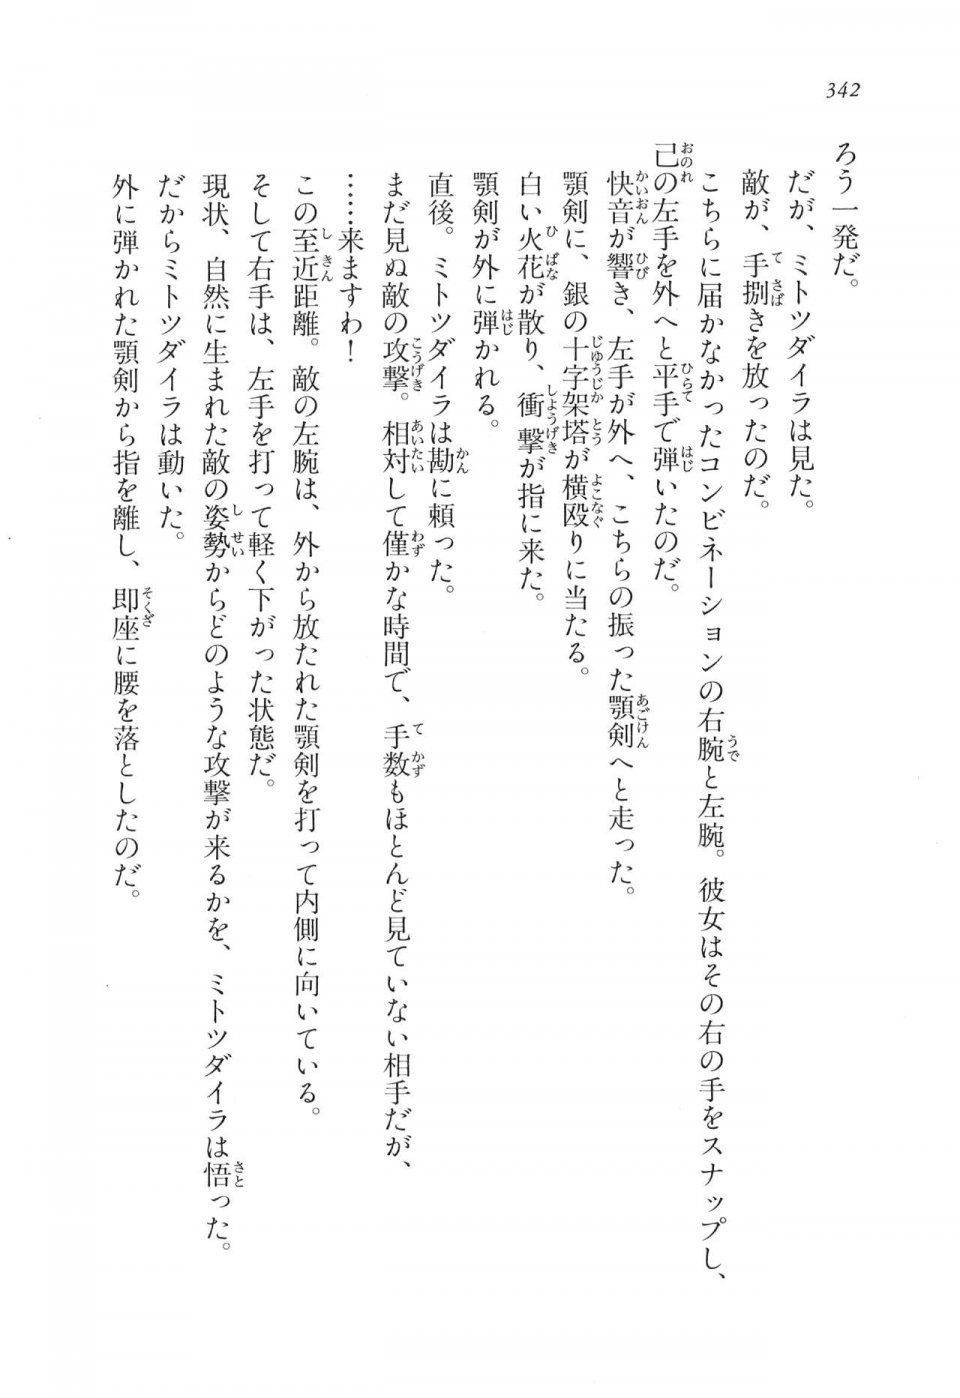 342
ろう一発だ。
だが、ミトツダイラは見た。
敵が、手捌きを放ったのだ。
こちらに届かなかったコンビネーションの右腕と左腕。彼女はその右の手をスナップし、
己の左手を外へと平手で弾いたのだ。
快音が響き、左手が外へ、こちらの振った顎剣へと走った。
顎剣に、銀の十字架塔が横殴りに当たる。
白い火花が散り、衝撃が指に来た。
顎剣が外に弾かれる。
直後。ミトツダイラは勘に頼った。
まだ見ぬ敵の攻撃。相対して僅かな時間で、手数もほとんど見ていない相手だが、
……来ますわ！
この至近距離。敵の左腕は、外から放たれた顎剣を打って内側に向いている。
そして右手は、左手を打って軽く下がった状態だ。
現状、自然に生まれた敵の姿勢からどのような攻撃が来るかを、ミトツダイラは悟った。
だからミトツダイラは動いた。
外に弾かれた顎剣から指を離し、即座に腰を落としたのだ。